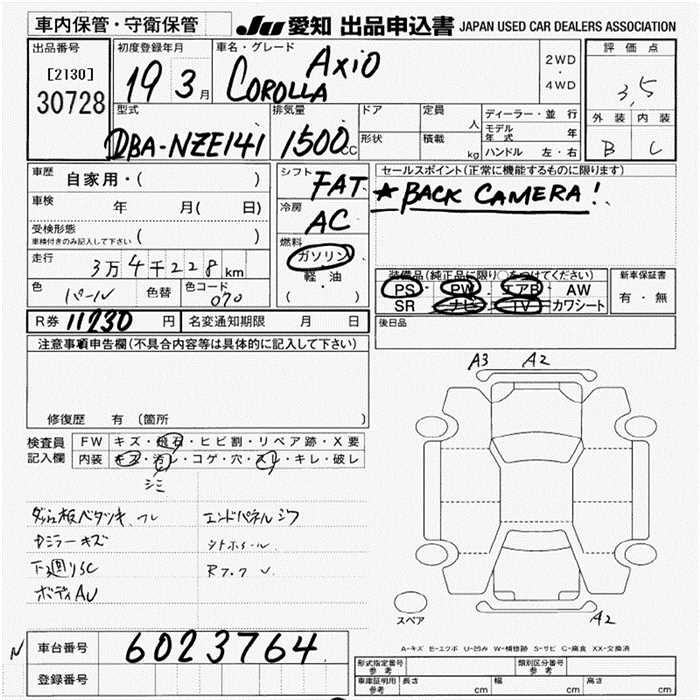 車内保管・守衛保管
JU 愛知 出品申込書 JAPAN USED CAR DEALERS ASSOCIATION
出品番号
[2130]
30728
初度登録年月
19 3月
車名・グレード
COROLLA AXIO
2WD
・
4WD
評価点
3.5
外装 内装
B C
型式
DBA-NZE141
排気量
1500cc
ドア
形状
定員
人
積載
kg
ディーラー・並行
モデル年式 年
ハンドル 左・右
車歴 自家用・( )
車検 年 月( 日)
受検形態
車検付きのみ記入して下さい ( )
走行 3万4千228km
色 パール 色替 色コード 070
シフト FAT
冷房 AC
燃料
ガソリン
軽・油
( )
セールスポイント(正常に機能するものに限ります)
★BACK CAMERA!
装備品(純正品に限り○をつけてください)
PS・PW・エアB・AW
SR ナビ・TV・カワシート
新車保証書
有・無
R券 11230円 名変通知期限 月 日
後日品
注意事項申告欄(不具合内容等は具体的に記入して下さい)
修復歴 有(箇所 )
検査員記入欄
FW キズ・飛石・ヒビ割・リペア跡・X要
内装 キズ・汚レ・コゲ・穴・スレ・キレ・破レ
シミ
ダッシュ板ベタツキ、スレ
エンドパネルシワ
Rミラーキズ
下回りSC
ボディAU
A3 A2
A2
スペア
A-キズ E-エクボ U-凹み W-補修跡 S-サビ C-腐食 XX-交換済
N
車台番号 6023764
登録番号
形式指定番号 参考
類別区分番号 参考
車庫証明用 参考 長さ cm 幅 cm 高さ cm